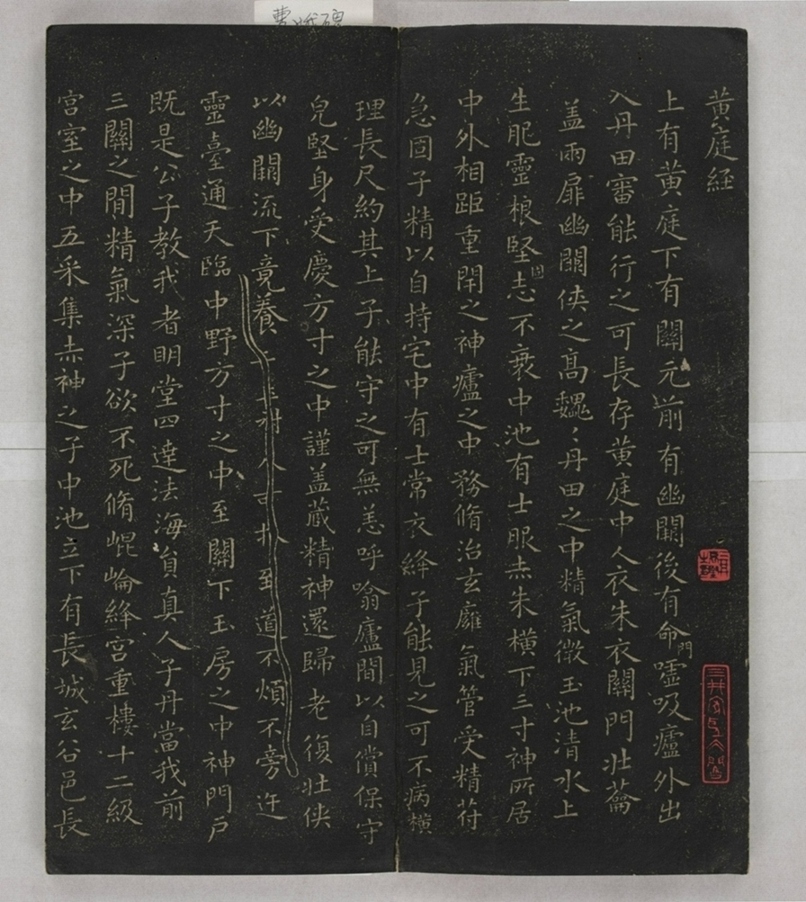 曹娥碑
黃庭経
上有黃庭下有關元前有幽關後有命門噓吸廬外出
入丹田審能行之可長存黃庭中人衣朱衣關門壯蘥
盖兩扉幽關侠之髙巍〻丹田之中精氣微玉池清水上
生肥靈根堅固志不衰中池有士服赤朱橫下三寸神所居
中外相距重閇之神廬之中務脩治玄㢕氣管受精苻
急固子精以自持宅中有士常衣絳子能見之可不病橫
理長尺約其上子能守之可無恙呼噏廬間以自償保守
皃堅身受慶方寸之中謹盖藏精神還歸老復壯侠
以幽關流下竟養至道不煩不旁迕
靈臺通天臨中野方寸之中至關下玉房之中神門戶
既是公子教我者眀堂四達法海貟真人子丹當我前
三關之間精氣深子欲不死脩崐崘絳宮重樓十二級
宮室之中五采集赤神之子中池立下有長城玄谷邑長